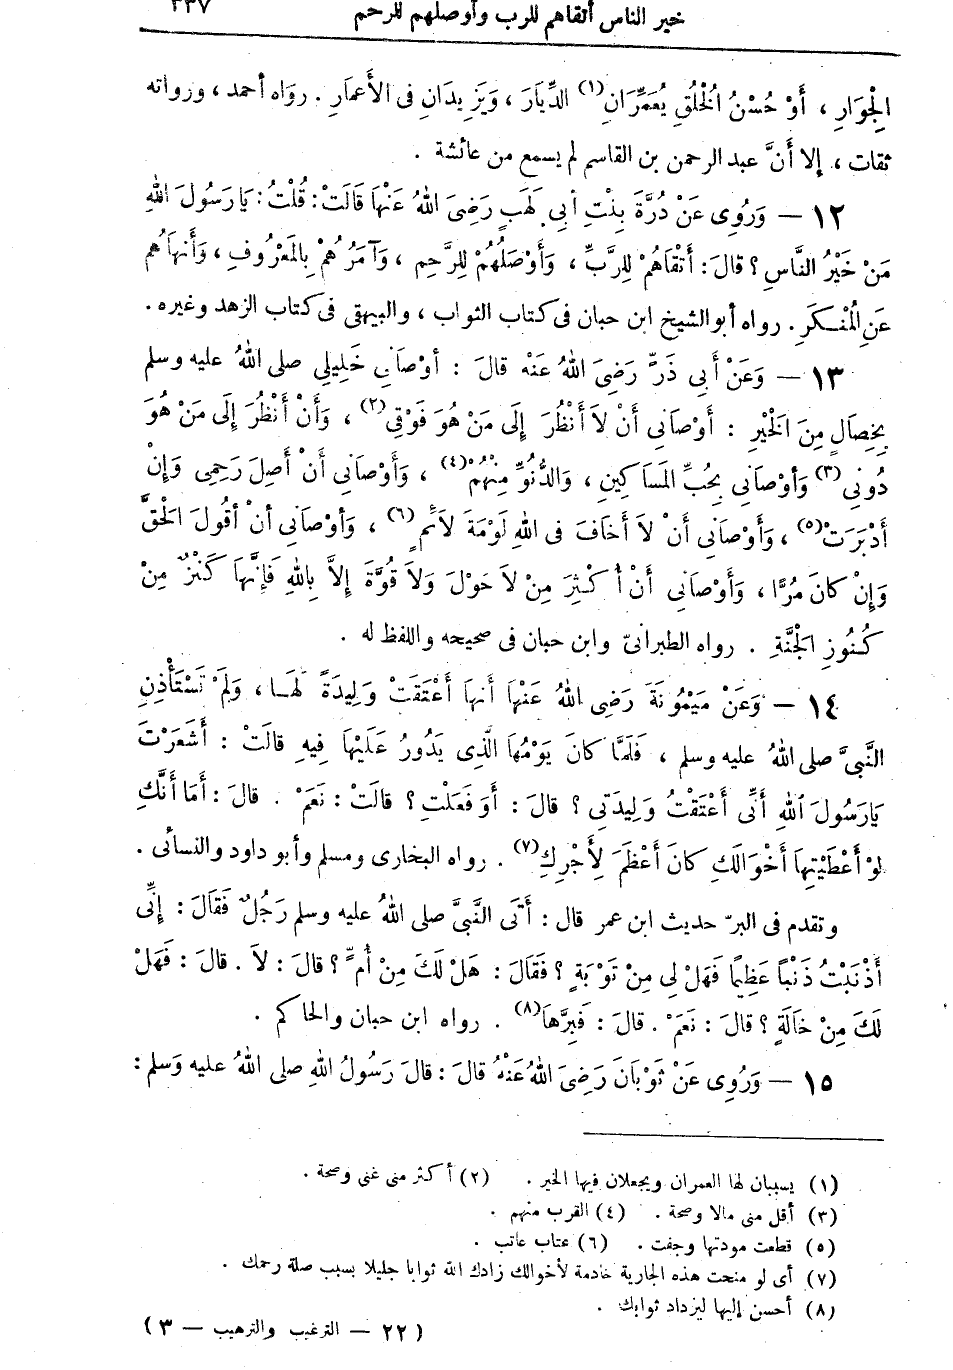 خير الناس أتقاهم للرب وأوصلهم للرحم ٣٣٧
الْجِوَارِ ، أَوْ حُسْنُ الْخُلُقِ يُعَمِّرَانِ(١) الدِّيَارَ ، وَيَزِيدَانِ فِى الأَعمَارِ . رواه أحمد ، ورواته
ثقات ، إلا أنَّ عبد الرحمن بن القاسم لم يسمع من عائشة .
١٢ — وَرُوِى عَنْ دُرَّةَ بِنْتِ أَبِى لَهَبٍ رَضِىَ اللهُ عَنْهَا قَالَتْ: قُلْتُ: يَا رَسُولَ اللهِ
مَنْ خَيْرُ النَّاسِ ؟ قالَ: أَتْقَاهُمْ لِلرَّبِّ ، وَأَوْصَلُهُمْ لِلرَّحِمِ ، وَآمَرُهُمْ بِالْمَعْرُوفِ ، وَأَنْهَاهُمْ
عَنِ الْمُنْكَرِ . رواه أبو الشيخ ابن حبان فى كتاب الثواب ، والبيهقى فى كتاب الزهد وغيره .
١٣ — وَعَنْ أَبِى ذَرٍّ رَضِىَ اللهُ عَنْهُ قالَ : أَوْصَانِى خَلِيلِى صلى اللهُ عليه وسلم
بِخِصَالٍ مِنَ الْخَيْرِ : أَوْصَانِى أَنْ لاَ أَنْظُرَ إِلَى مَنْ هُوَ فَوْقِى(٢) ، وَأَنْ أَنْظُرَ إِلَى مَنْ هُوَ
دُونِى(٣) وَأَوْصَانِى بِحُبِّ الْمَسَاكِينِ ، وَالدُّنُوِّ مِنْهُمْ(٤) ، وَأَوْصَانِى أَنْ أَصِلَ رَحِمِى وَإِنْ
أَدْبَرَتْ(٥) ، وَأَوْصَانِى أَنْ لاَ أَخَافَ فى اللهِ لَوْمَةَ لاَئمٍ(٦) ، وَأَوْصَانِى أَنْ أَقُولَ الْحَقَّ
وَإِنْ كانَ مُرًّا ، وَأَوْصَانِى أَنْ أُكْثِرَ مِنْ لاَ حَوْلَ وَلاَ قُوَّةَ إِلاَّ بِاللهِ فَإِنَّهَا كَنْزٌ مِنْ
كُنُوزِ الْجَنَّةِ . رواه الطبرانىّ وابن حبان فى صحيحه واللفظ له .
١٤ — وَعَنْ مَيْمُونَةَ رَضِىَ اللهُ عَنْهَا أَنهَا أَعْتَقَتْ وَلِيدَةً لَهَا ، وَلَمْ تَسْتَأْذِنِ
النَّبِىَّ صلى اللهُ عليه وسلم ، فَلَمَّا كانَ يَوْمُهَا الَّذِى يَدُورُ عَلَيْهَا فِيهِ قالَتْ : أَشَعَرْتَ
يَا رَسُولَ اللهِ أَنِّى أَعْتَقْتُ وَلِيدَتِى ؟ قالَ : أَوَ فَعَلْتِ ؟ قالَتْ : نَعَمْ . قالَ : أَمَا أَنَّكِ
لَوْ أَعْطَيْتِهَا أَخْوَالَكِ كانَ أَعْظَمَ لِأَجْرِكِ(٧) . رواه البخارى ومسلم وأبو داود والنسائى .
وتقدم فى البرّ حديث ابن عمر قال : أَتَى النَّبِىَّ صلى اللهُ عليه وسلم رَجُلٌ فَقَالَ : إِنِّى
أَذْنَبْتُ ذَنْبًا عَظِيمًا فَهَلْ لِى مِنْ تَوْبَةٍ ؟ فَقَالَ : هَلْ لَكَ مِنْ أُمٍّ ؟ قالَ : لاَ . قالَ : فَهَلْ
لَكَ مِنْ خَالَةٍ ؟ قالَ : نَعَمْ . قالَ : فَبِرَّهَا(٨) . رواه ابن حبان والحاكم .
١٥ — وَرُوِى عَنْ ثَوْبَانَ رَضِىَ اللهُ عَنْهُ قالَ : قالَ رَسُولُ اللهِ صلى اللهُ عليه وَسلم :
(١) يسببان لها العمران ويجعلان فيها الخير . (٢) أكثر منى غنى وصحة .
(٣) أقل منى مالا وصحة . (٤) القرب منهم .
(٥) قطعت مودتها وجفت . (٦) عتاب عاتب .
(٧) أى لو منحت هذه الجارية خادمة لأخوالك زادك الله ثوابا جليلا بسبب صلة رحمك .
(٨) أحسن إليها ليزداد ثوابك .
(٢٢ — الترغيب والترهيب — ٣)